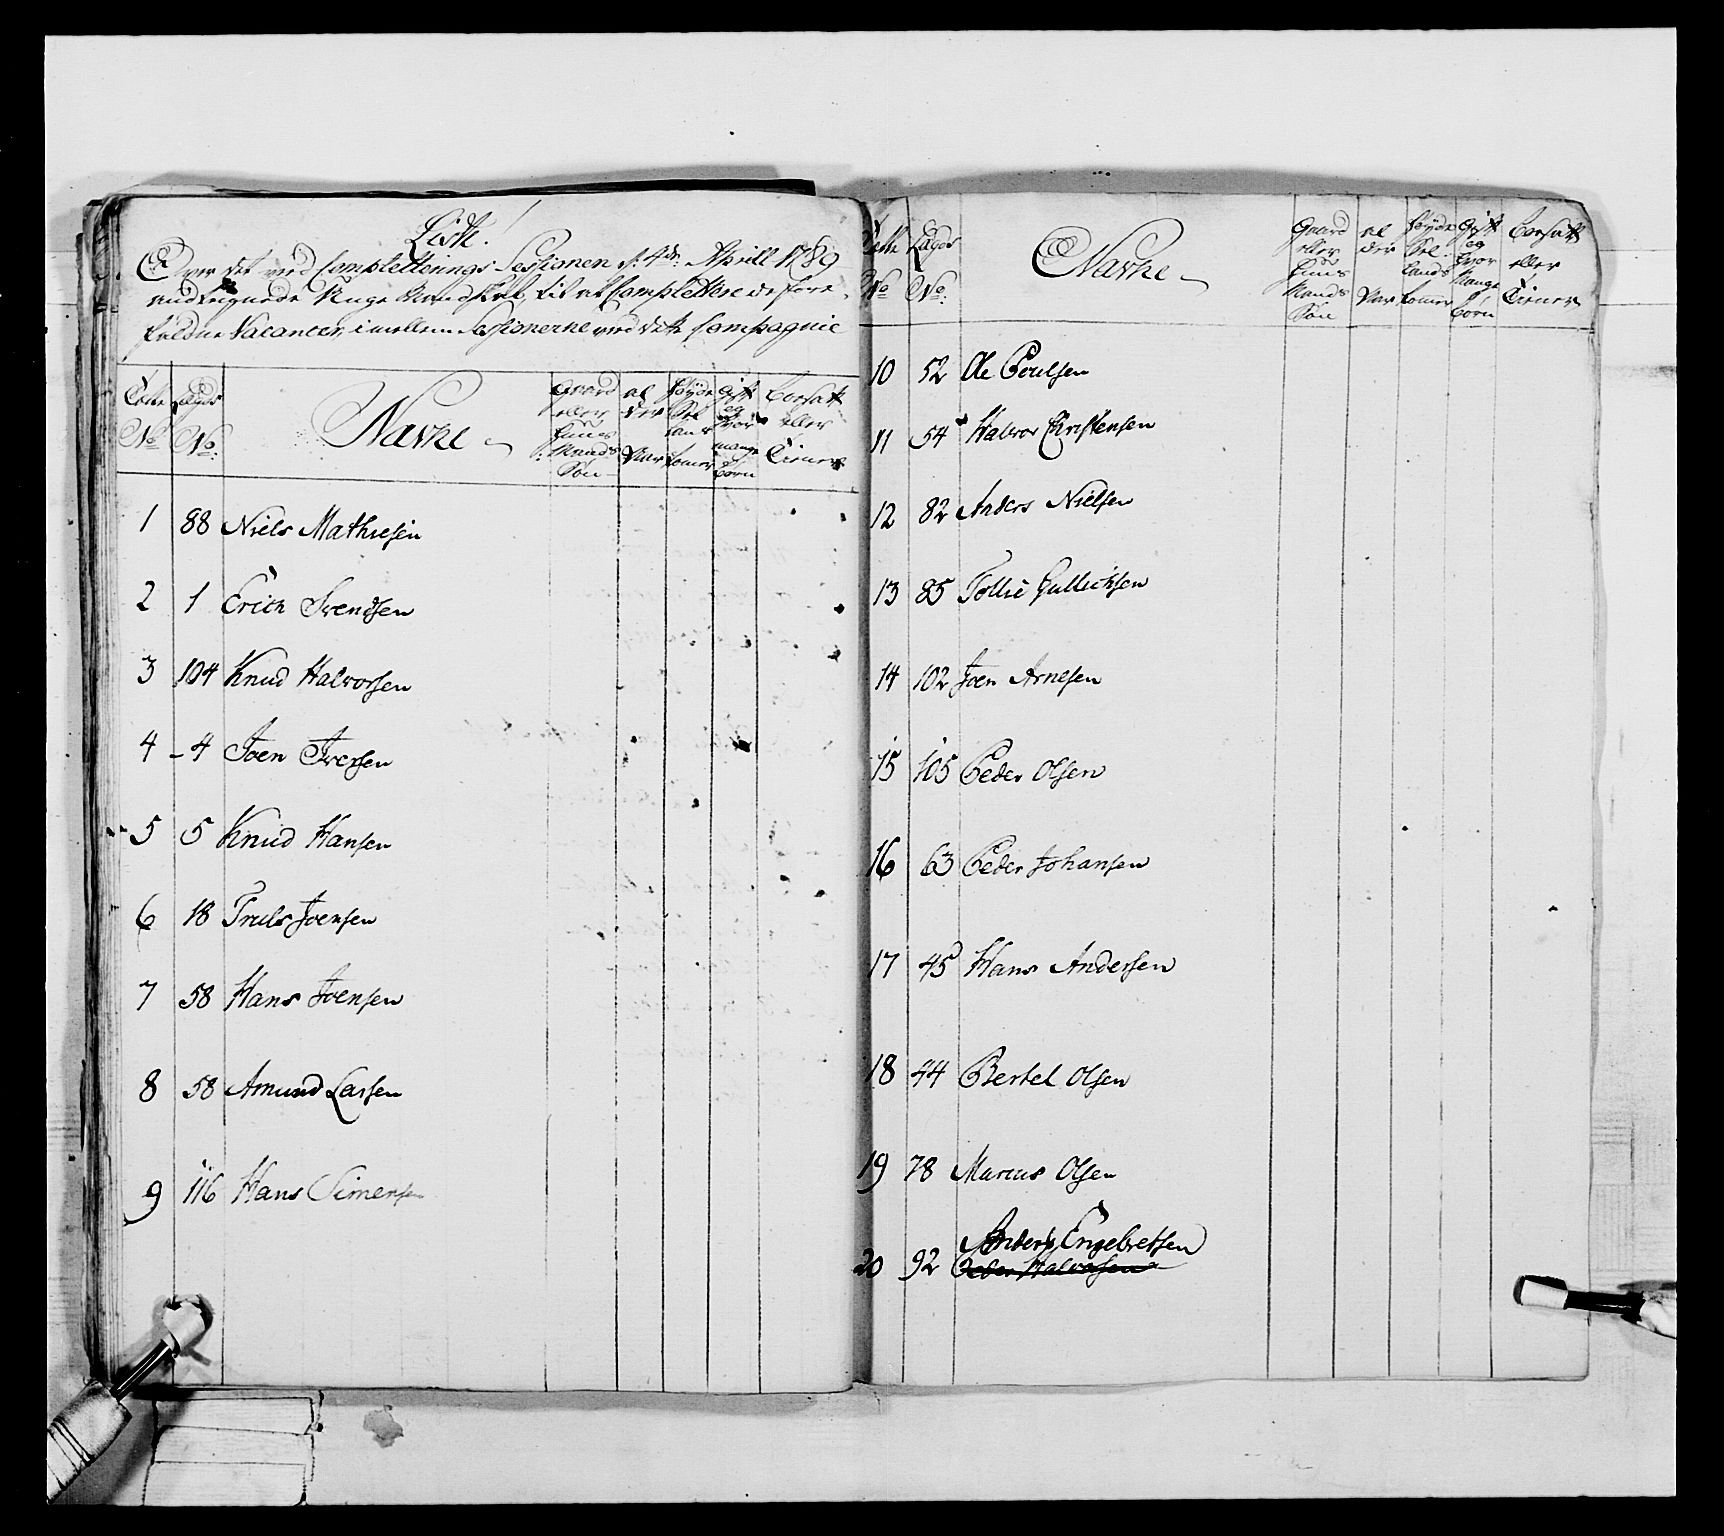 Liste!
Over det ved Completterings Sessionen d: 4de Aprill 1789
udtegnede Unge Mandskab til at Complettere de fore
faldne Vacancer, imellem Sessionerne ved dette Compagnie
No No: Navne Gaard eller Huus Mands Søn al der Aar høyde Sol Tomer gift og hvor mange børn bosatt eller Tiener
1 88 Niels Mathiesen
2 1 Erich Svendsen
3 104 Knud Halvorsen
4 4 Joen Iversen
5 5 Knud Hansen
6 18 Truls Joensen
7 58 Hans Joensen
8 58 Amund Larsen
9 116 Hans Simensen
No No: Navne Gaard eller Huus Mands Søn al der Aar høyde Sol. Tomer gift og hvor Mange børn bosatt eller Tiener
10 52 Ole Poulsen
11 54 Halvor Christensen
12 82 Anders Nielsen
13 85 Tollie Gullichsen
14 102 Joen Arnesen
15 105 Peder Olsen
16 63 Peder Johansen
17 45 Hans Andersen
18 44 Bertel Olsen
19 78 Marcus Olsen
Anders Engebretsen
20 92 Peder Halvorsen